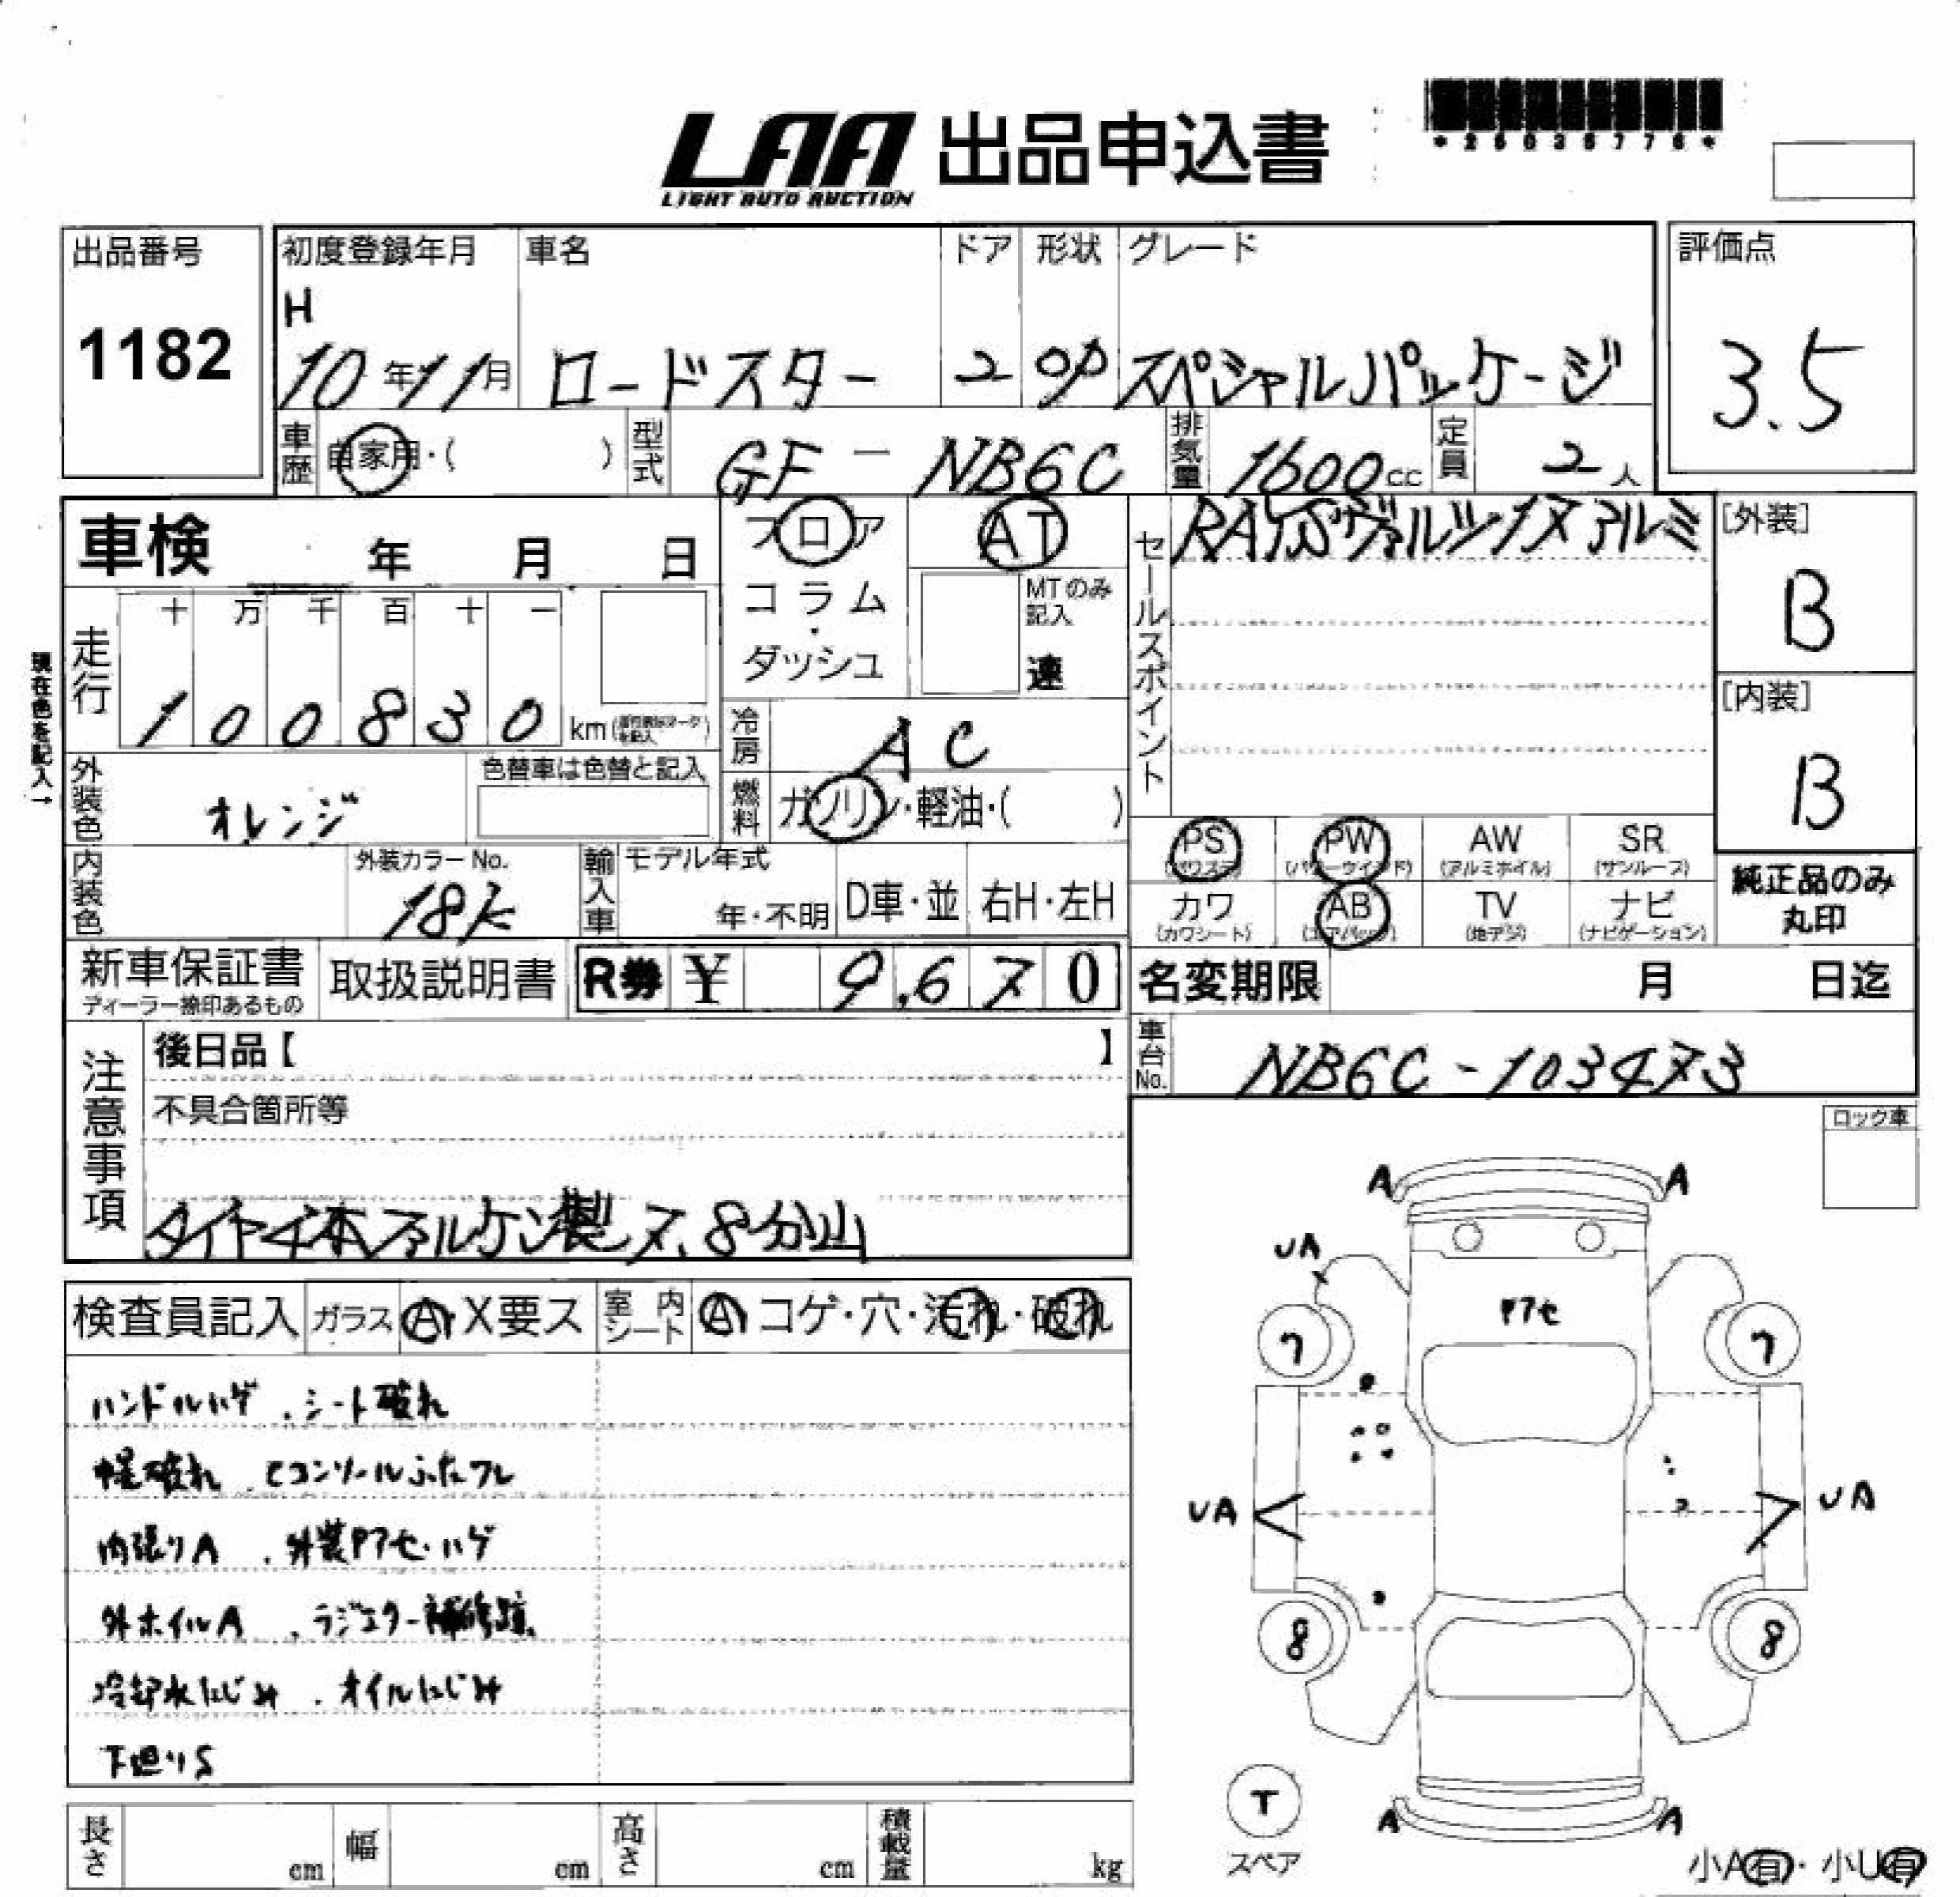 LAA 出品申込書
LIGHT AUTO AUCTION
*25035776*
出品番号
1182
初度登録年月
H
10年11月
車名
ロードスター
ドア
2
形状
OP
グレード
スペシャルパッケージ
評価点
3.5
車歴
自家用・( )
型式
GF-NB6C
排気量
1600cc
定員
2人
車検 年 月 日
フロア
コラム・ダッシュ
AT
MTのみ記入
速
セールスポイント
RAYS アルミ
[外装]
B
[内装]
B
走行
十 万 千 百 十 一
1 0 0 8 3 0 km
現在色を記入→
冷房
AC
燃料
ガソリン・軽油・( )
外装色
オレンジ
色替車は色替と記入
PS (パワステ)
PW (パワーウインド)
AW (アルミホイル)
SR (サンルーフ)
カワ (カワシート)
AB (エアバッグ)
TV (地デジ)
ナビ (ナビゲーション)
純正品のみ丸印
内装色
外装カラーNo.
18K
輸入車
モデル年式
年・不明
D車・並
右H・左H
新車保証書
ディーラー捺印あるもの
取扱説明書
R券 ¥ 9,670
名変期限 月 日迄
車台No.
NB6C-103473
注意事項
後日品【 】
不具合箇所等
タイヤ4本ファルケン製7、8分山
ロック車
検査員記入
ガラス
A・X要ス
室内シート
A・コゲ・穴・汚れ・破れ
ハンドルハゲ、シート破れ
幌破れ、Cコンソールふたワレ
内張りA、外装Pアセ・ハゲ
外ホイルA、ラジエター補修跡
冷却水にじみ、オイルにじみ
下廻りS
A A
UA
Pアセ
7 7
UA UA
8 8
T
スペア
A A
小A有・小U有
長さ cm
幅 cm
高さ cm
積載量 kg